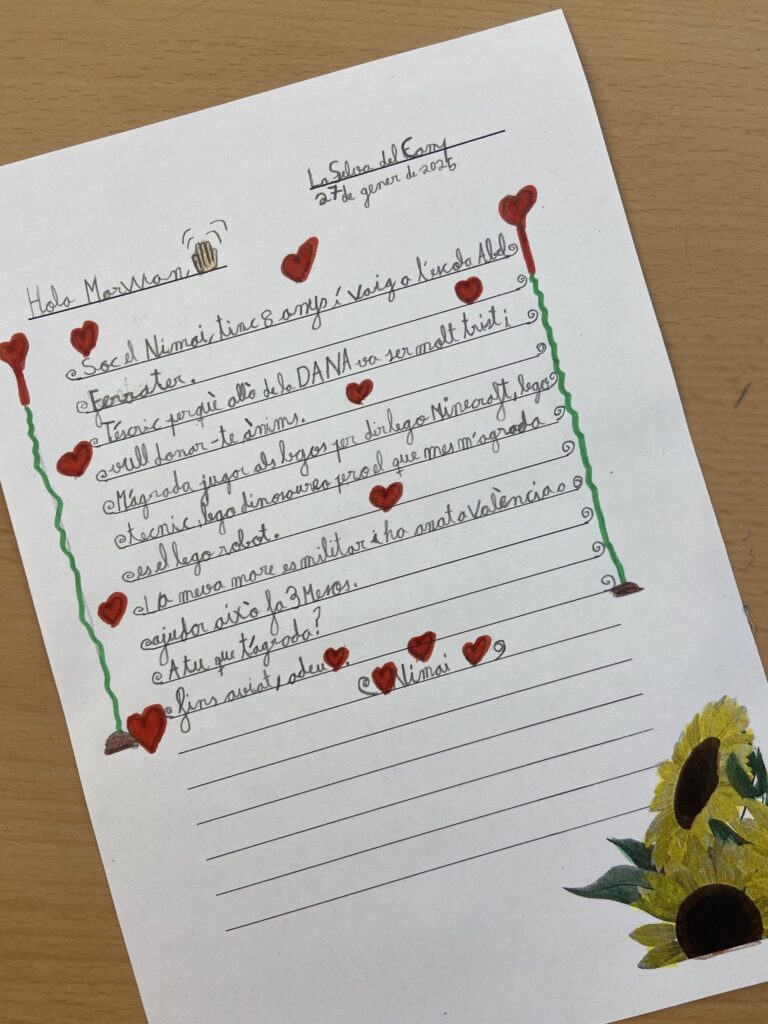 La Selva del Camp
27 de gener de 2025
Hola Marwan
Soc el Nimai, tinc 8 anys i vaig a l'escola Abel
Ferrater.
T'escric perquè allò de la DANA va ser molt trist i
vull donar-te ànims.
M'agrada jugar als legos per dir lego Minecraft, lego
tecnic, lego dinosaures pro el que mes m'agrada
es el lego robot.
La meva mare es militar i ha anat a València a
ajudar això fa 3 Mesos.
A tu que t'agrada?
fins aviat, adeu.
Nimai